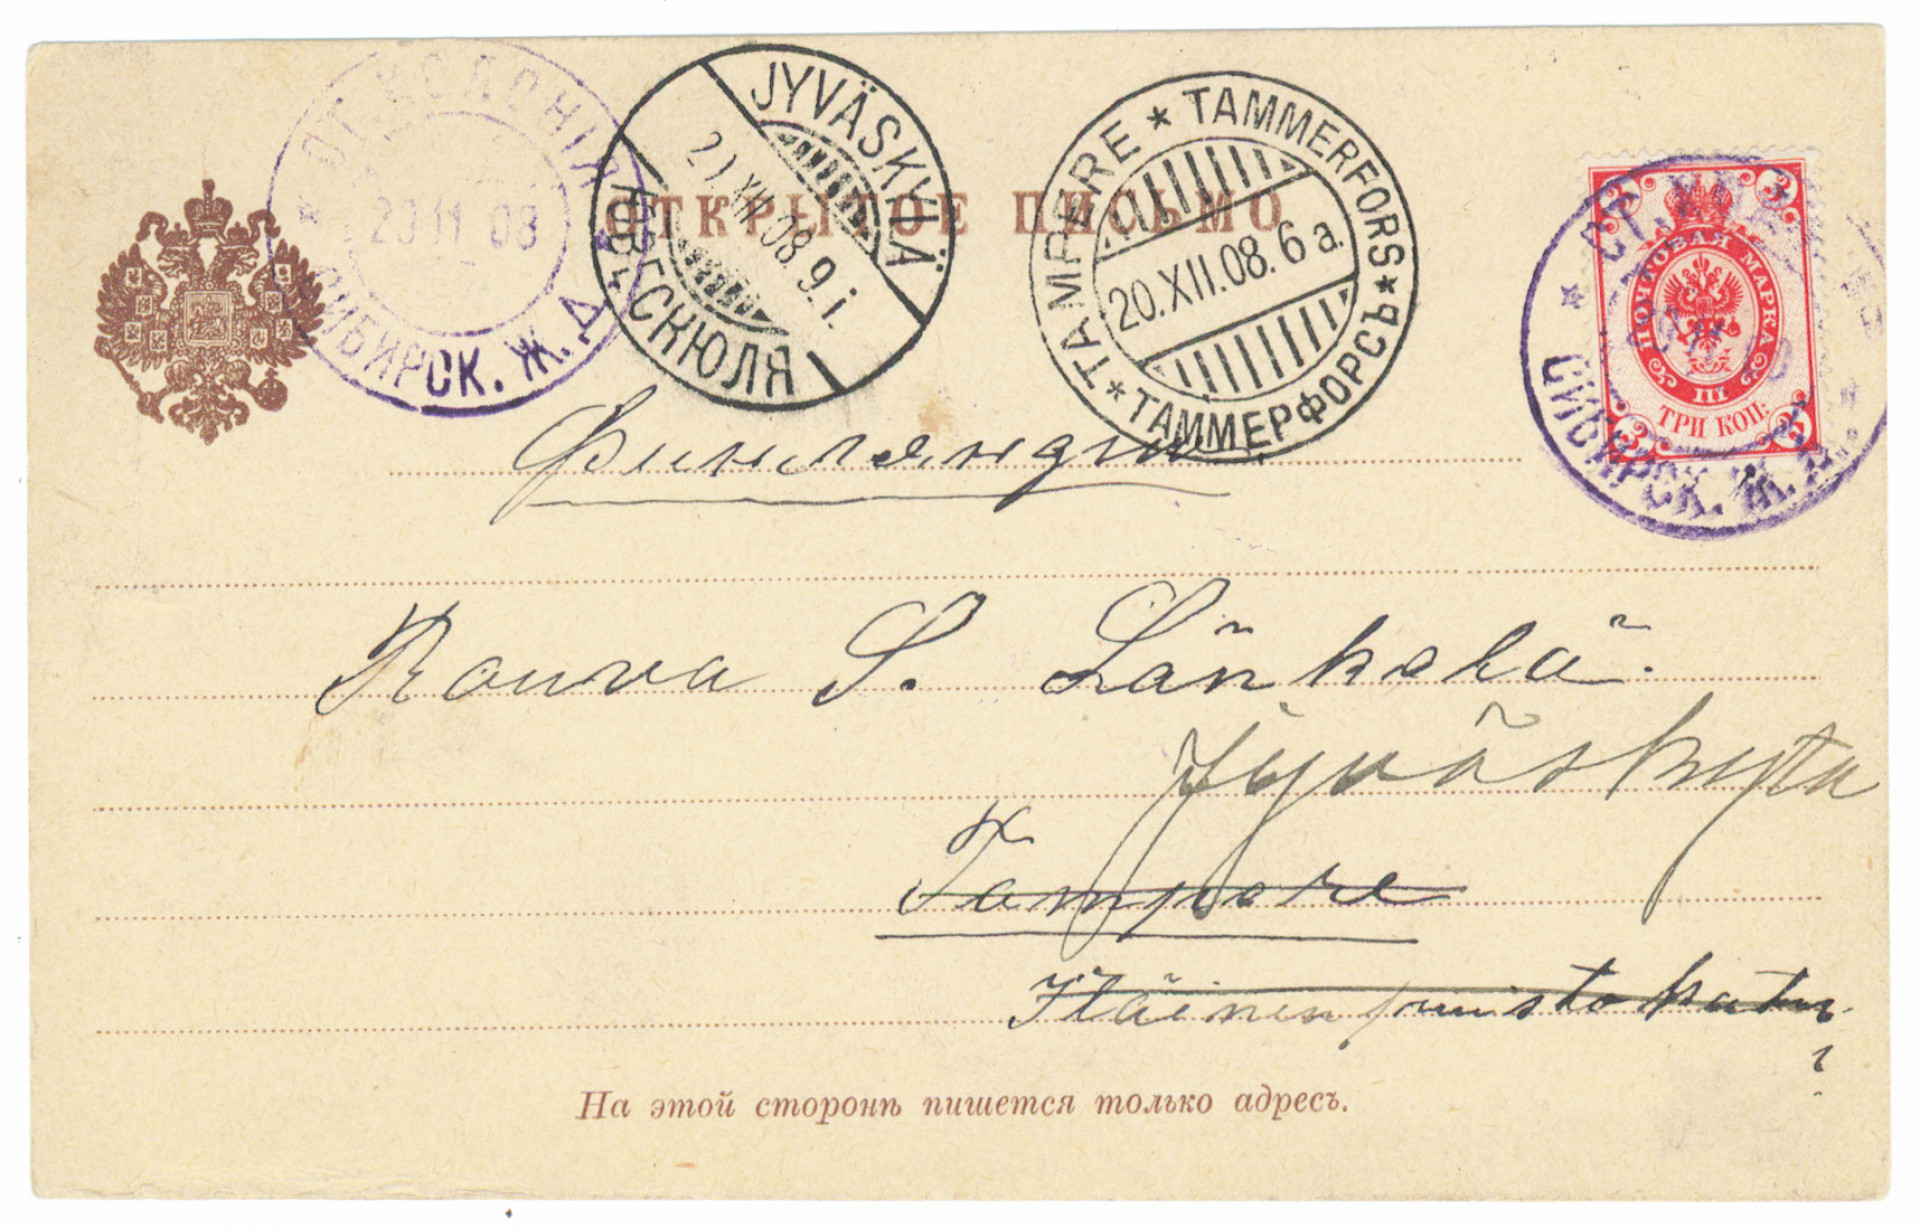 СИБИРСК. Ж. Д.
29 11 08
JYVÄSKYLÄ
21.XII.08.9.i.
ЮВЕСКЮЛЯ
TAMPERE * TAMMERFORS
20.XII.08.6 a.
ТАММЕРФОРСЪ
ОТКРЫТОЕ ПИСЬМО
3 3
ПОЧТОВАЯ МАРКА
III
ТРИ КОП:
3 3
СТ.
СИБИРСК. Ж. Д.
Финляндия
Rouva S. Länkelä.
Jyväskylä
Tampere
Hämeenpuistokatu
?
На этой сторонѣ пишется только адресъ.